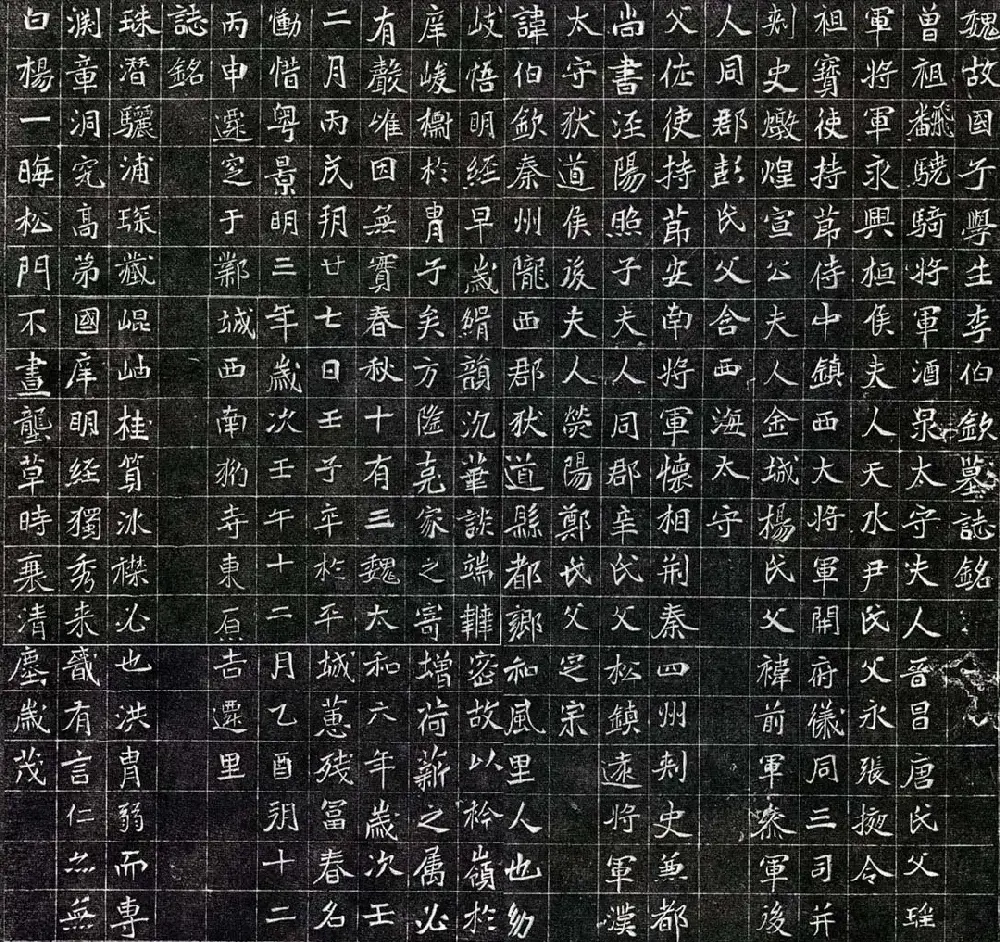 魏故國子學生李伯欽墓誌銘
曾祖飜驍騎將軍酒泉太守夫人晉昌唐氏父瑤
軍將軍永興桓侯夫人天水尹氏父永張掖令
祖寶使持節侍中鎮西大將軍開府儀同三司并
刺史燉煌宣公夫人金城楊氏父禕前軍參軍後
人同郡彭氏父含西海太守
父佐使持節安南將軍懷相荊秦四州刺史兼都
尚書涇陽照子夫人同郡辛氏父松鎮遠將軍漢
太守狄道侯後夫人滎陽鄭氏父定宗
諱伯欽秦州隴西郡狄道縣都鄉和風里人也幼
岐悟明經早歲縟韻沉華談端韡密故以衿嶺於
庠峻於胄子矣方隆克家之寄增荷薪之属必
有唯因無實春秋十有三魏太和六年歲次壬
二月丙戌朔廿七日壬子卒於平城蕙殘冨春名
慟惜粵景明三年歲次壬午十二月乙酉朔十二
丙申遷窆于鄴城西南豹寺東原吉遷里
誌銘
珠潛驪浦琛藏崐岫桂質冰襟必也洪胄弱而專
渊章洞究高第國庠明經獨秀来哉有言仁亦無
白楊一晦松門不晝龔草時衰清塵歲茂